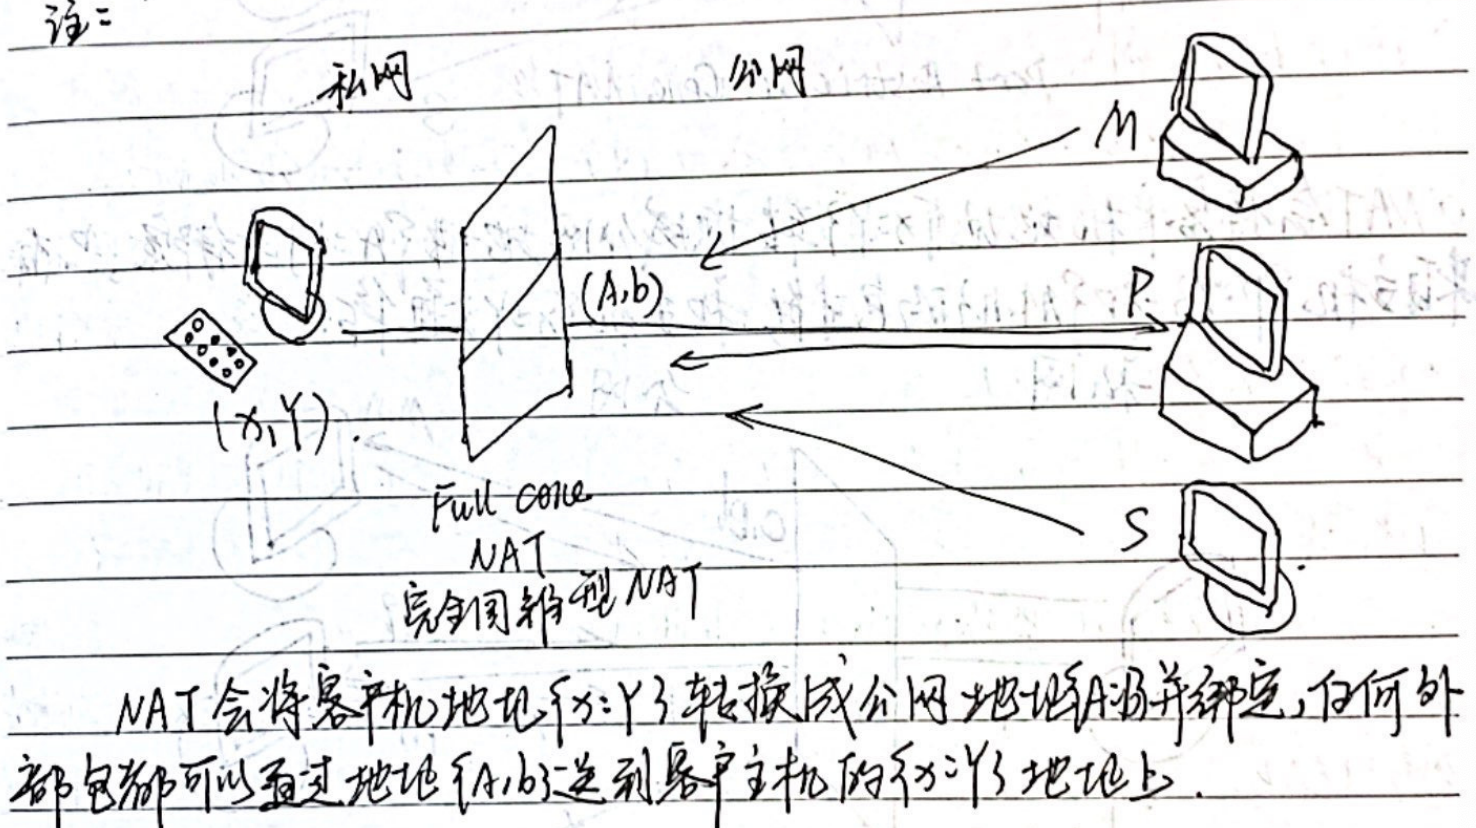 注:
私网 公网
M
(A,b) P
(x,Y).
S
Full cone
NAT
完全圆锥型NAT
NAT会将客户机地址{x:Y}转换成公网地址{A:b}并绑定,任何外
部包都可以通过地址{A,b}送到客户主机的{x:Y}地址上.